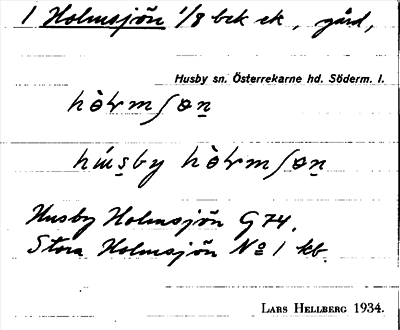 1 Holmsjön 1/8 bek ek, gård,
Husby sn. Österrekarne hd. Söderm. l.
Husby Holmsjön G 74.
Stora Holmsjön No 1 kb.
LARS HELLBERG 1934.